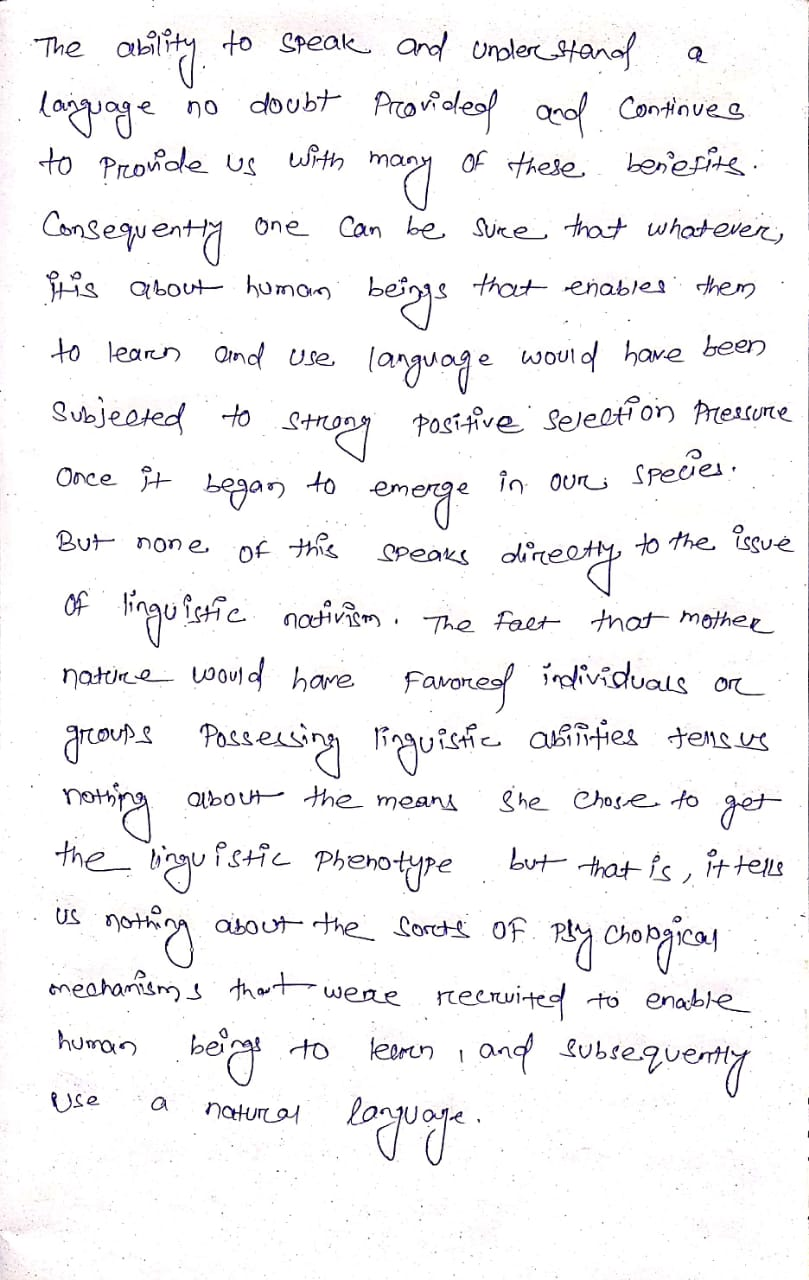 The ability to speak and understand a
language no doubt Provided and Continues
to Provide us with many of these benefits.
Consequently one can be sure that whatever,
itis about human beings that enables them
to learn and use language would have been
Subjected to strong positive selection Pressure
Once it began to emerge in our species.
But none of this speaks directly to the issue
of linguistic nativism. The fact that mother
nature would have favored individuals or
groups Possessing linguistic abilities tells us
nothing about the means she chose to get
the linguistic Phenotype but that is, it tells
us nothing about the sorts of Psychological
mechanisms that were recruited to enable
human beings to learn, and subsequently
Use a natural language.